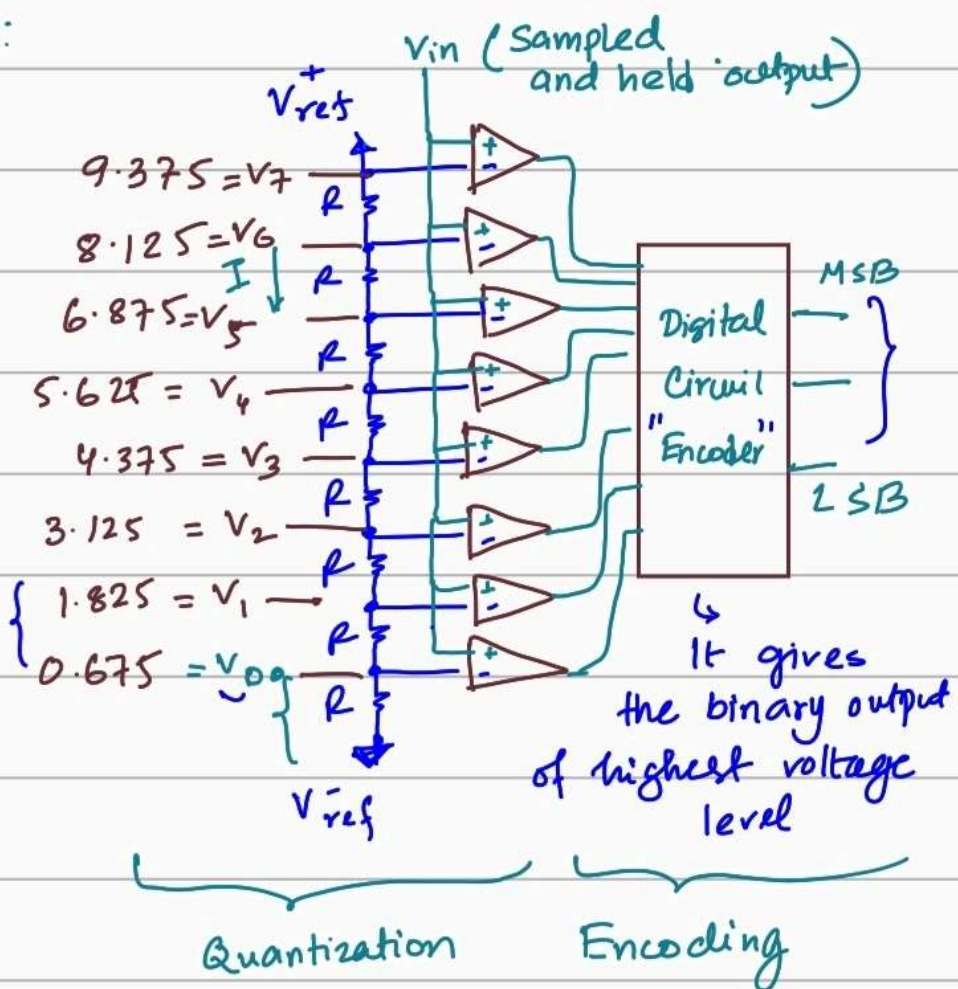 :
Vin (Sampled
and held output)
V+ref
9.375 = V7
R
8.125 = V6
I
R
6.875 = V5
R
5.625 = V4
R
4.375 = V3
R
3.125 = V2
R
1.825 = V1
R
0.675 = V0
R
V-ref
+
-
+
-
+
-
+
-
+
-
+
-
+
-
+
-
Digital
Circuit
"Encoder"
MSB
LSB
↳
It gives
the binary output
of highest voltage
level
Quantization
Encoding